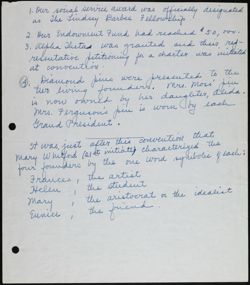 1. Our social service award was officially designated
as The Lindsey Barbee Fellowship.
2. Our Endowment Fund had reached $50,000.
3. Alpha Theta was granted and their rep-
resentative petitioning for a charter was initiated
at convention.
4. Diamond pins were presented to the
two living founders. Mrs. Mos' pin
is now owned by her daughter, Leda.
Mrs. Ferguson's pin is worn by each
Grand President.
It was just after this convention that
Mary (21st initiate) characterized the
four founders by the one word symbols of each:
Frances, the artist
Helen, the student
Mary, the aristocrat or the idealist
Eunice, the friend.